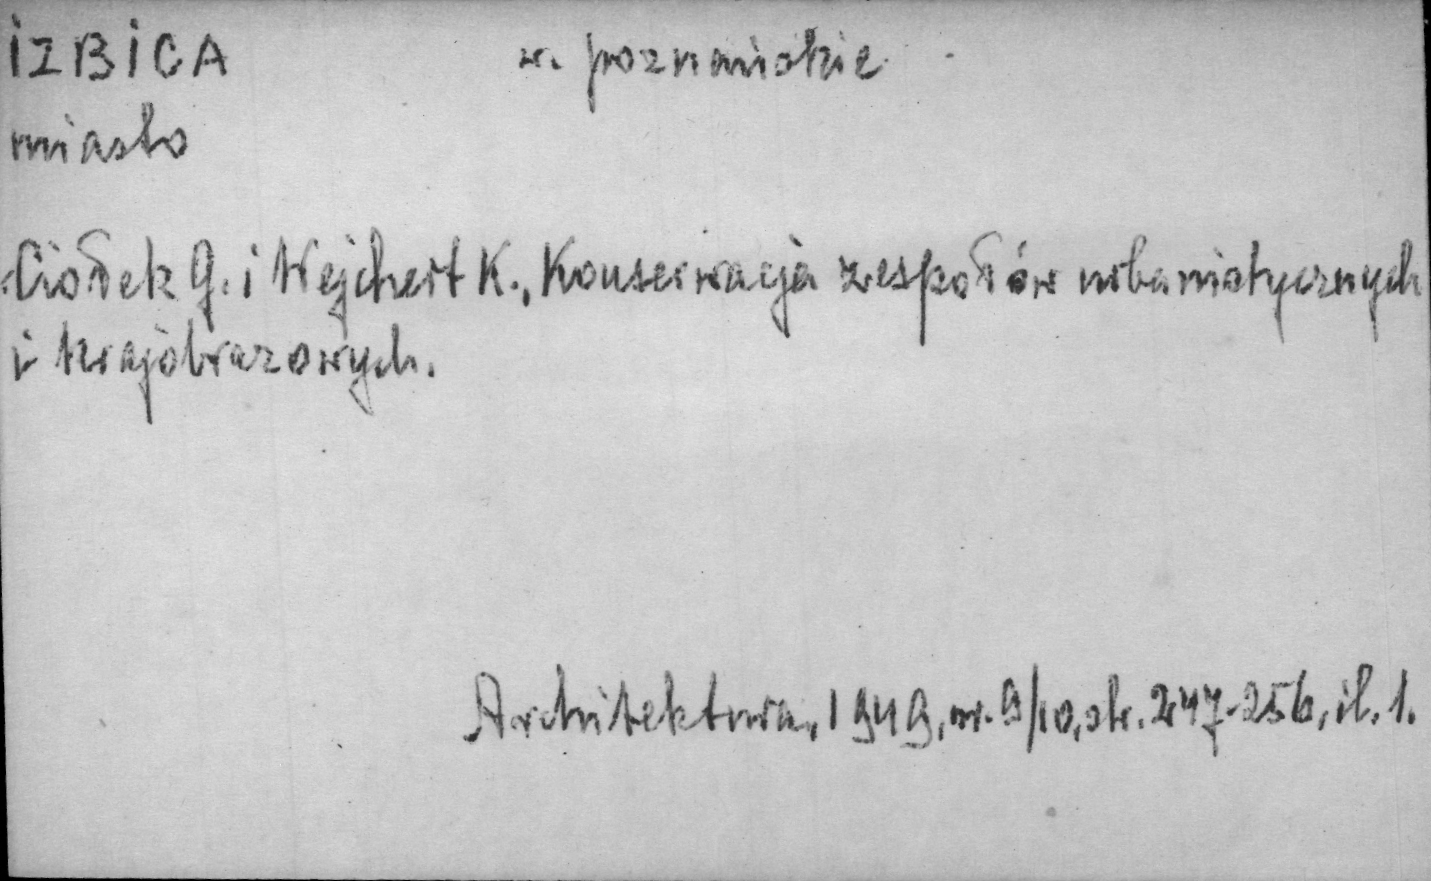 IZBICA w. poznańskie
miasto
Ciołek G. i Wejchert K., Konserwacja zespołów urbanistycznych
i krajobrazowych.
Architektura, 1949, nr. 9/10, str. 247-256, il. 1.